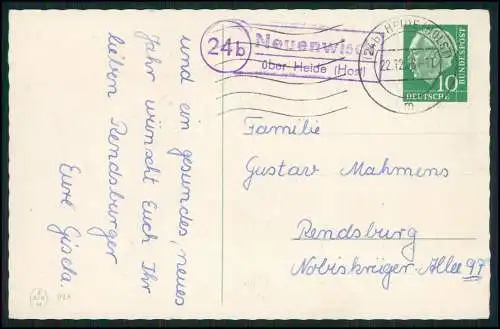 24b
Neuenwisch
über Heide (Holst)
(24b) HEIDE (HOLST)
22.12.
DEUTSCHE
BUNDESPOST
10
und ein gesundes, neues
Jahr wünscht Euch Ihr
lieben Rendsburger
Eure Gisela.
Familie
Gustav Mahmens
Rendsburg
Nobiskrüger-Allee 97